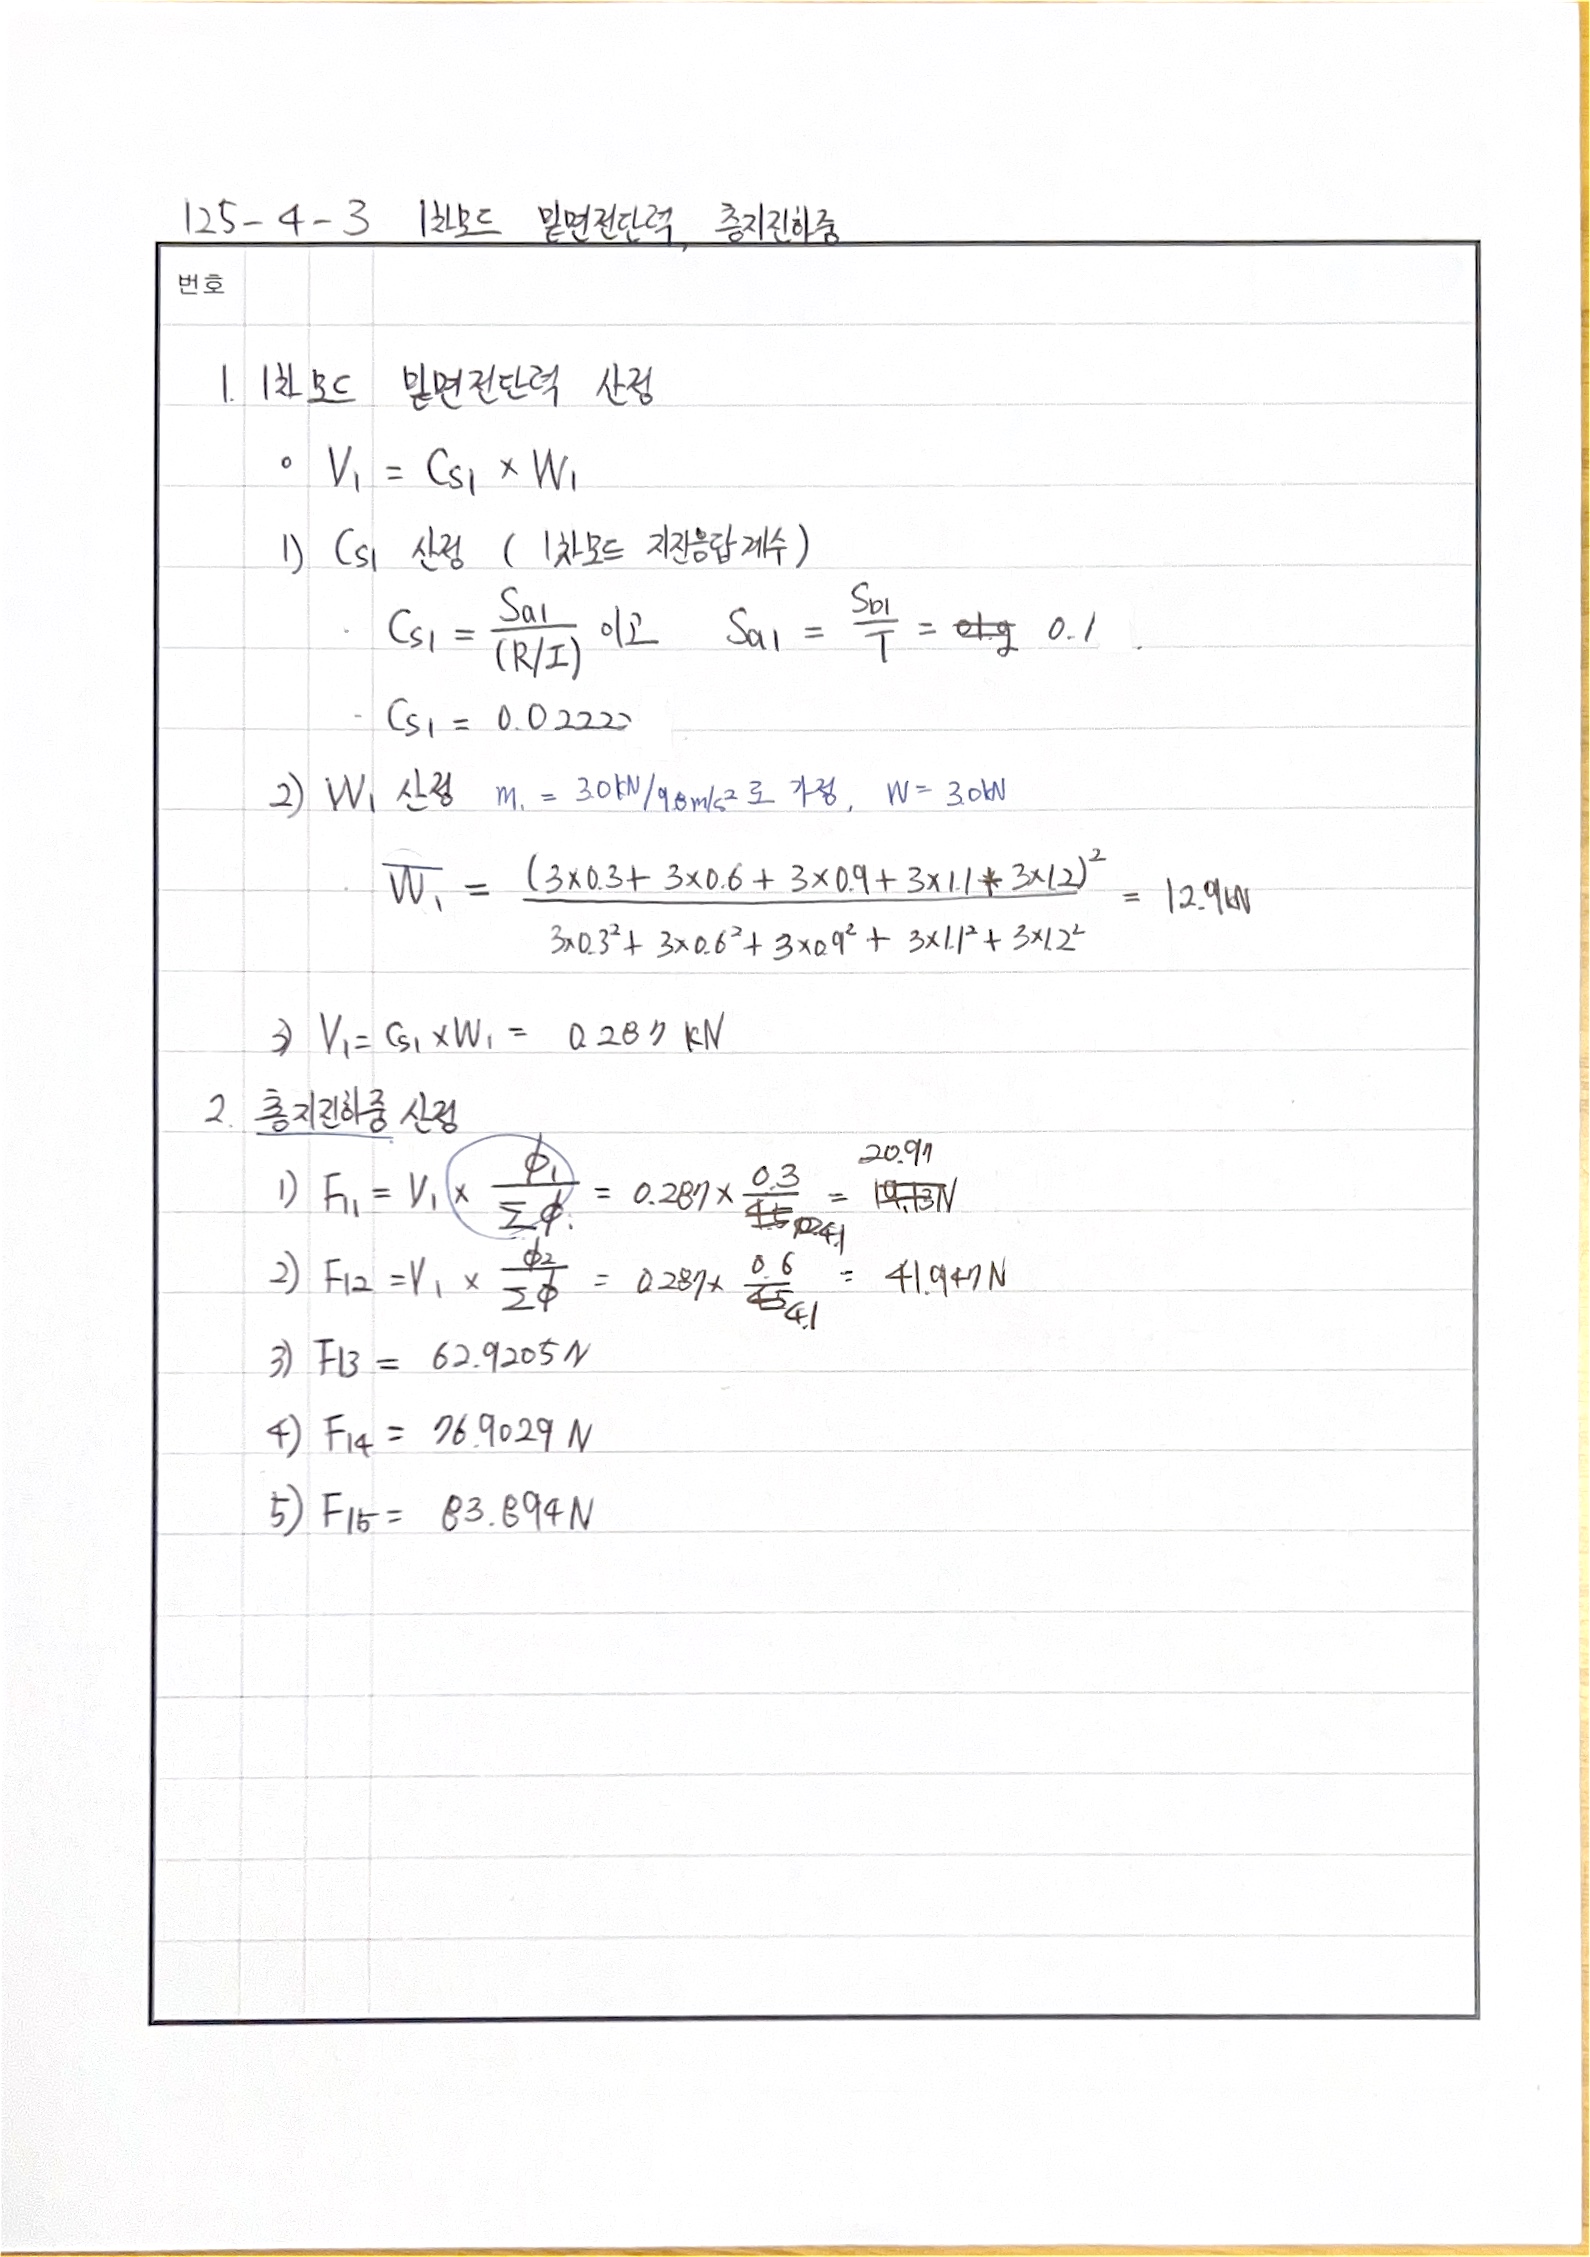 125-4-3 1차모드 밑면전단력, 층지진하중
번호
1. 1차모드 밑면전단력 산정
° V₁ = Cs₁ × W₁
1) Cs₁ 산정 ( 1차모드 지진응답계수)
· Cs₁ = Sa₁/(R/I) 이고 Sa₁ = S_D1/T = 0.1
- Cs₁ = 0.02222
2) W₁ 산정 m. = 3.0kN/9.8m/s² 로 가정, W = 3.0kN
· W̅₁ = (3×0.3 + 3×0.6 + 3×0.9 + 3×1.1 + 3×1.2)² / 3×0.3² + 3×0.6² + 3×0.9² + 3×1.1² + 3×1.2² = 12.9kN
3) V₁ = Cs₁ × W₁ = 0.287 kN
2. 층지진하중 산정
1) F₁₁ = V₁ × ϕ₁/Σϕ. = 0.287 × 0.3/4.1 = 20.97 N
2) F₁₂ = V₁ × ϕ₂/Σϕ = 0.287 × 0.6/4.1 = 41.947 N
3) F₁₃ = 62.9205 N
4) F₁₄ = 76.9029 N
5) F₁₅ = 83.894 N